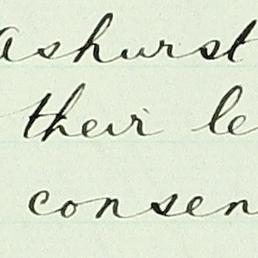 ashurst
their le
consen